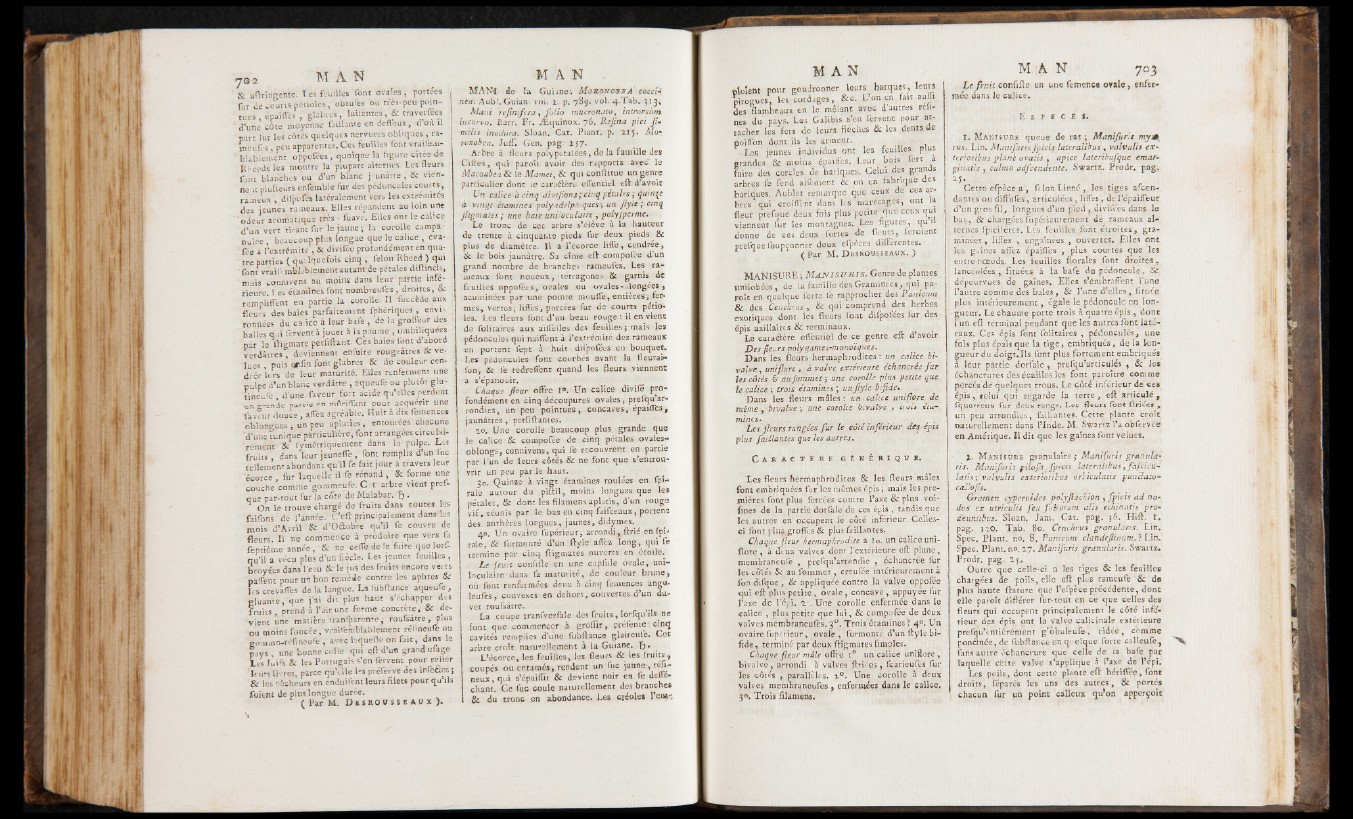 702 MAN MAN
& astringente. Les feuilles sont ovales, portées
sur de courts pétioles, obtuses ou très-peu poin-
tues, épaisses, glabres, luisantes, & traversées
d'une côte moyenne saillante en dessous, d'où il
part sur les côtés quelques nervures obliques, ra-
meuses, peu apparentes. Ces feuilles sont vraisem-
blablement opposées, quoique la figure citée de
Rheede les montre la plupart alternes. Les fleurs
sont blanches ou d'un blanc jaunâtre, & vien-
nent plusieurs ensemble sur des pédoncules courts,
rameux, disposés latéralement vers les extrémités
des jeunes rameaux. Elles répandent au loin une
odeur aromatique très-suave. Elles ont le calice
d'un vert tirant sur le jaune; la corolle campa-
nulée, beaucoup plus longue que le calice, éva-
sée à l'extrémité, & divisée profondément en qua-
tre parties (quelquefois cinq, selon Rheed) qui
sont vraisemblablement autant de pétales distincts,
mais connivens au moins dans leur partie infé-
rieure. Les étamines sont nombreuses, droites, &
remplissent en partie la corolle. Il succède aux
fleurs des baies parfaitement sphériques, envi-
ronnées du calice à leur base, de la grosseur des
balles qui servent à jouer à la paume, ombiliquées
par le stigmate persistant. Ces baies sont d'abord
verdâtres, deviennent ensuite rougeâtres & ve-
lues, puis enfin sont glabres & de couleur cen-
drée lors de leur maturité. Elles renferment une
pulpe d'un blanc verdâtre, aqueuse ou plutôt glu-
tineuse, d'une saveur fort acide qu'elles perdent
en grande partie en mûrissant pour acquérir une
saveur douce, assez agréable. Huit à dix semences
oblongues, un peu aplaties, entourées chacune
d'une tunique particulière, sont arrangées circulai-
rement & symétriquement dans la pulpe. Les
fruits, dans leur jeunesse, sont remplis d'un suc
tellement abondant qu'il se fait jour à travers leur
écorce, sur laquelle il se répand, & forme une
couche comme gommeuse. Cet arbre vient pres-
que par-tout sur la côte de Malabar. ♄.
On le trouve chargé de fruits dans toutes les
saisons de l'année. C'est principalement dans les
mois d'Avril & d'Octobre qu'il se couvre de
fleurs. Il ne commence à produire que vers sa
septième année, & ne cesse de le faire que lors-
qu'il a vécu plus d'un siècle. Les jeunes feuilles,
broyées dans l'eau & le jus des fruits encore verts
passent pour un bon remède contre les aphtes &
les crevasses de la langue. La substance aqueuse,
gluante, que j'ai dit plus haut s'échapper des
fruits, prend à l'air une forme concrète, & de-
vient une matière transparente, roussâtre, plus
ou moins foncée, vraisemblablement résineuse ou
gommo-résineuse, avec laquelle on fait, dans le
pays, une bonne colle qui est d'un grand usage.
Les Juifs & les Portugais s'en servent pour relier
leurs livres, parce qu'elle les préserve des insectes;
& les pêcheurs en enduisent leurs filets pour qu'ils
soient de plus longue durée.
( Par M. DESROUSSEAUX ).
MANI de la Guiane. MORONOBEA cocci-
nea. Aubl. Guian. vol. 2. p. 789. vol. 4. Tab. 313.
Mani resinifera, folio mucronato, introrsum
incurvo. Barr. Fr. Æquinox. 76. Resina pici si-
milis inodora. Sloan. Cat. Plant. p. 215. Mo-
ronobea. Juss. Gen. pag. 257.
Arbre à fleurs polypétalées, de la famille des
Cistes, qui paroît avoir des rapports avec le
Macoubea & le Mamei, & qui constitue un genre
particulier dont le caractère essentiel est d'avoir
Un calice à cinq divisions; cinq pétales; quinze
à vingt étamines polyadelphiques; un style; cinq
stigmates; une baie uniloculaire, polysperme.
Le tronc de cet arbre s'élève à la hauteur
de trente à cinquante pieds sur deux pieds &
plus de diamètre. Il a l'écorce lisse, cendrée,
& le bois jaunâtre. Sa cîme est composée d'un
grand nombre de branches rameuses. Les ra-
meaux sont noueux, tetragones & garnis de
feuilles opposées, ovales ou ovales-alongées,
acuminées par une pointe mousse, entières, fer-
mes, vertes, lisses, portées sur de courts pétio-
les. Les fleurs sont d'un beau rouge: il en vient
de solitaires aux aisselles des feuilles; mais les
pédoncules qui naissent à l'extrémité des rameaux
en portent sept à huit disposées en bouquet.
Les pédoncules sont courbés avant la fleurai-
son, & se redressent quand les fleurs viennent
à s'épanouir.
Chaque fleur offre 1°. Un calice divisé pro-
fondément en cinq découpures ovales, presqu'ar-
rondies, un peu pointues, concaves, épaisses,
jaunâtres, persistantes.
2°. Une corolle beaucoup plus grande que
le calice & composée de cinq pétales ovales-
oblongs, connivens, qui se recouvrent en partie
par l'un de leurs côtés & ne font que s'entrou-
vrir un peu par le haut.
3°. Quinze à vingt étamines roulées en spi-
rale autour du pistil, moins longues que les
pétales, & dont les filamens aplatis, d'un rouge
vif, réunis par le bas en cinq faisceaux, portent
des anthères longues, jaunes, didymes.
4°. Un ovaire supérieur, arrondi, strié en spi-
rale, & surmonté d'un style assez long, qui se
termine par cinq stigmates ouverts en étoile.
Le fruit consiste en une capsule ovale, uni-
loculaire dans sa maturité, de couleur brune,
où sont renfermées deux à cinq semences angu-
leuses, convexes en dehors, couvertes d'un du-
vet roussâtre.
La coupe transversale des fruits, lorsqu'ils ne
font que commencer à grossir, présente cinq
cavités remplies d'une substance glaireuse. Cet
arbre croît naturellement à la Guiane. ♄.
L'écorce, les feuilles, les fleurs & les fruits,
coupés ou entamés, rendent un suc jaune, rési-
neux, qui s'épaissit & devient noir en se dessé-
chant. Ce suc coule naturellement des branches
& du tronc en abondance. Les créoles l'em-
MAN MAN 703
ploient pour goudronner leurs barques, leurs
pirogues, les cordages, &c. L'on en fait aussi
des flambeaux en le mêlant avec d'autres rési-
nes du pays. Les Galibis s'en servent pour at-
tacher les fers de leurs flèches & les dents de
poisson dont ils les arment.
Les jeunes individus ont les feuilles plus
grandes & moins épaisses. Leur bois sert à
faire des cercles de bariques. Celui des grands
arbres se fend aisément & on en fabrique des
bariques. Aublet remarque que ceux de ces ar-
bres qui croissent dans les marécages, ont la
fleur presque deux fois plus petite que ceux qui
viennent sur les montagnes. Les figures, qu'il
donne de ces deux sortes de fleurs, feroient
presque soupçonner deux espèces différentes.
( Par M. DESROUSSEAUX. )
MANISURE; MANISURIS. Genre de plantes
unilobées, de la famille des Graminées, qui pa-
roît en quelque sorte se rapprocher des Panicum
& des Cenchrus, & qui comprend des herbes
exotiques dont les fleurs sont disposées sur des
épis axillaires & terminaux.
Le caractère essentiel de ce genre est d'avoir
Des fleurs polygames-monoïques.
Dans les fleurs hermaphrodites: un calice bi-
valve, uniflore, à valve extérieure échancrée sur
les côtés & au sommet; une corolle plus petite que
le calice; trois étamines; un style bifide.
Dans les fleurs mâles: un calice uniflore de
même, bivalve; une corolle bivalve, trois éta-
mines.
Les fleurs rangées sur le côté inférieur des épis
plus saillantes que les autres.
CARACTERE GÉNÉRIQUE.
Les fleurs hermaphrodites & les fleurs mâles
sont embriquées sur les mêmes épis; mais les pre-
mières sont plus serrées contre l'axe & plus voi-
sines de la partie dorsale de ces épis, tandis que
les autres en occupent le côté inférieur. Celles-
ci sont plus grosses & plus saillantes.
Chaque fleur hermaphrodite a 1o. un calice uni-
flore, à deux valves dont l'extérieure est plane,
membraneuse, presqu'arrondie, échancrée sur
les côtés & au sommet, creusée intérieurement à
son disque, & appliquée contre la valve opposée
qui est plus petite, ovale, concave, appuyée sur
l'axe de l'épi. 2°. Une corolle enfermée dans le
calice, plus petite que lui, & composée de deux
valves membraneuses. 3°. Trois étamines? 4°. Un
ovaire supérieur, ovale, surmonté d'un style bi-
fide, terminé par deux stigmates simples.
Chaque fleur mâle offre 1° un calice uniflore,
bivalve, arrondi, à valves striées, scarieuses sur
les côtés, parallèles. 2°. Une corolle à deux
valves membraneuses, enfermées dans le calice.
3°. Trois filamens.
Le fruit consiste en une semence ovale, enfer-
mée dans le calice.
ESPECES.
1. MANISURE queue de rat; Manisuris myu-
rus. Lin. Manisuris spicis lateralibus, valvulis ex-
terioribus planè ovatis, apice lateribusque emar-
ginatis, culmo adscendente. Swartz. Prodr. pag.
25.
Cette espèce a, selon Linné, les tiges ascen-
dantes ou diffuses, articulées, lisses, de l'épaisseur
d'un gros fil, longues d'un pied, divisées dans le
bas, & chargées supérieurement de rameaux al-
ternes spicifères. Les feuilles sont étroites, gra-
minées, lisses, engaînées, ouvertes. Elles ont
les gaînes assez épaisses, plus courtes que les
entre-nœuds. Les feuilles florales sont droites,
lancéolées, situées à la base du pédoncule, &
dépourvues de gaînes. Elles s'embrassent l'une
l'autre comme des bales, & l'une d'elles, située
plus intérieurement, égale le pédoncule en lon-
gueur. Le chaume porte trois à quatre épis, dont
l'un est terminal pendant que les autres sont laté-
raux. Ces épis sont solitaires, pédonculés, une
fois plus épais que la tige, embriqués, de la lon-
gueur du doigt. Ils sont plus fortement embriqués
à leur partie dorsale, presqu'articulés, & les
échancrures des écailles les font paroître comme
percés de quelques trous. Le côté inférieur de ces
épis, celui qui regarde la terre, est articulé,
squarreux sur deux rangs. Les fleurs sont striées,
un peu arrondies, saillantes. Cette plante croît
naturellement dans l'Inde. M. Swartz l'a observée
en Amérique. Il dit que les gaînes sont velues.
2. MANISURE granulaire; Manisuris granula-
ris. Manisuris pilosa, spicis lateralibus, fascicu-
latis; valvulis exterioribus orbiculatis punctato-
callosis.
Gramen cyperoides polystachion, spicis ad no-
dos ex utriculis seu foliorum alis echinatis pro-
deuntibus. Sloan. Jam. Cat. pag. 36. Hist. 1.
pag. 120. Tab. 80. Cenchrus granularis. Lin.
Spec. Plant. no. 8. Panicum clandestinum.? Lin.
Spec. Plant. no. 27. Manisuris granularis. Swartz.
Prodr. pag. 25.
Outre que celle-ci a les tiges & les feuilles
chargées de poils, elle est plus rameuse & de
plus haute stature que l'espèce précédente, dont
elle paroît différer sur-tout en ce que celles des
fleurs qui occupent principalement le côté infé-
rieur des épis ont la valve calicinale extérieure
presqu'entièrement globuleuse, ridée, comme
ponctuée, de substance en quelque sorte calleuse,
sans autre échancrure que celle de sa base par
laquelle cette valve s'applique à l'axe de l'épi.
Les poils, dont cette plante est hérissée, sont
droits, séparés les uns des autres, & portés
chacun sur un point calleux qu'on apperçoit